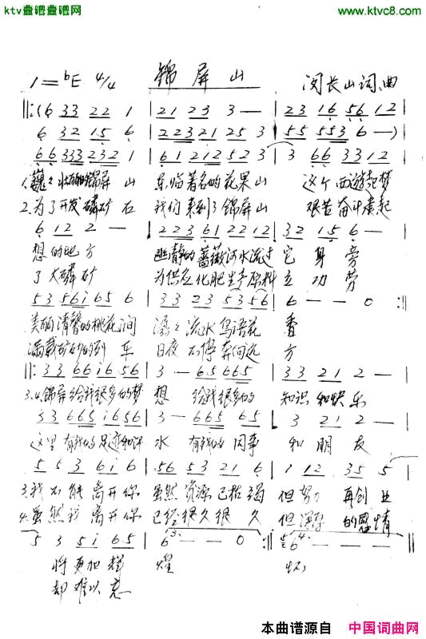 ktv谱吧谱吧网
www.ktvc8.com
锦屏山
1=bE 4/4
闵长山词、曲
‖:(6 33 22 1 | 21 23 3 — | 23 16 56 12 |
6 32 15 6 | 2223 21 25 3 | 55 553 6 —)|
66 333 232 1 | 61 212 52 3 | 3 66 33 12 |
1.巍巍 的锦屏 山 东临著名的花果山 这个 西游起梦
2.为了开发磷矿 石 我们来到了锦屏山 艰苦奋斗凑起
6 12 2 — | 223 61 22 12 | 32 15 6 — |
想的地方 幽静的蔷薇河水流过它 身 旁
了大磷矿 为供应化肥生产原料立 功 劳
53 56i i65 6 | 33 23 5356 | 6 — — 0 :‖
美丽清馨的桃花涧 潺潺流水鸟语花 香
满载矿砂的 车 日夜不停奔向远 方
‖: 33 66i 656 | 3 — 665 665 | 33 21 2 — |
3.4.锦屏给我很多的梦 想 给我很多的 知识和快乐
33 665 i656 | 3 — 665 65 | 3 21 2 — |
这里有我的足迹和汗 水 有我的同事 和朋友
5 5 3 6i 6 | 56 53 21 6 | 1 12 35 5 |
3.我不能离开你 虽然资源已枯竭 但努力再创业
4.虽然我离开你 已经很久很久 但 的恩情
5 3 5i 65 | 6 — — 0 :‖ 6 — — — ‖
将更加辉 煌 怀
却难以忘
本曲谱源自 中国词曲网